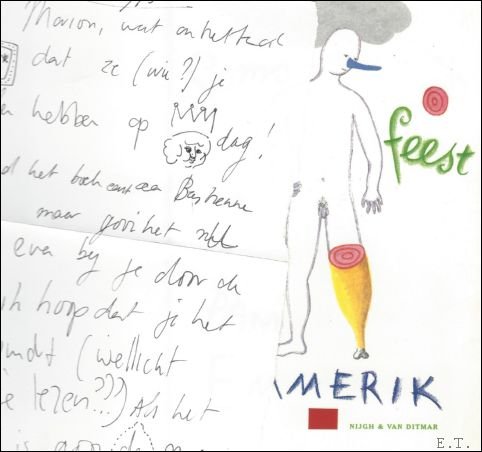 Marion, wat ontzettend
dat ze (wie?) je
hebben op
dag!
het boek aan
maar gooi het
even bij je door de
ik hoop dat je het
(wellicht
lezen???) Als het
is
feest
MERIK
NIJGH & VAN DITMAR
E.T.